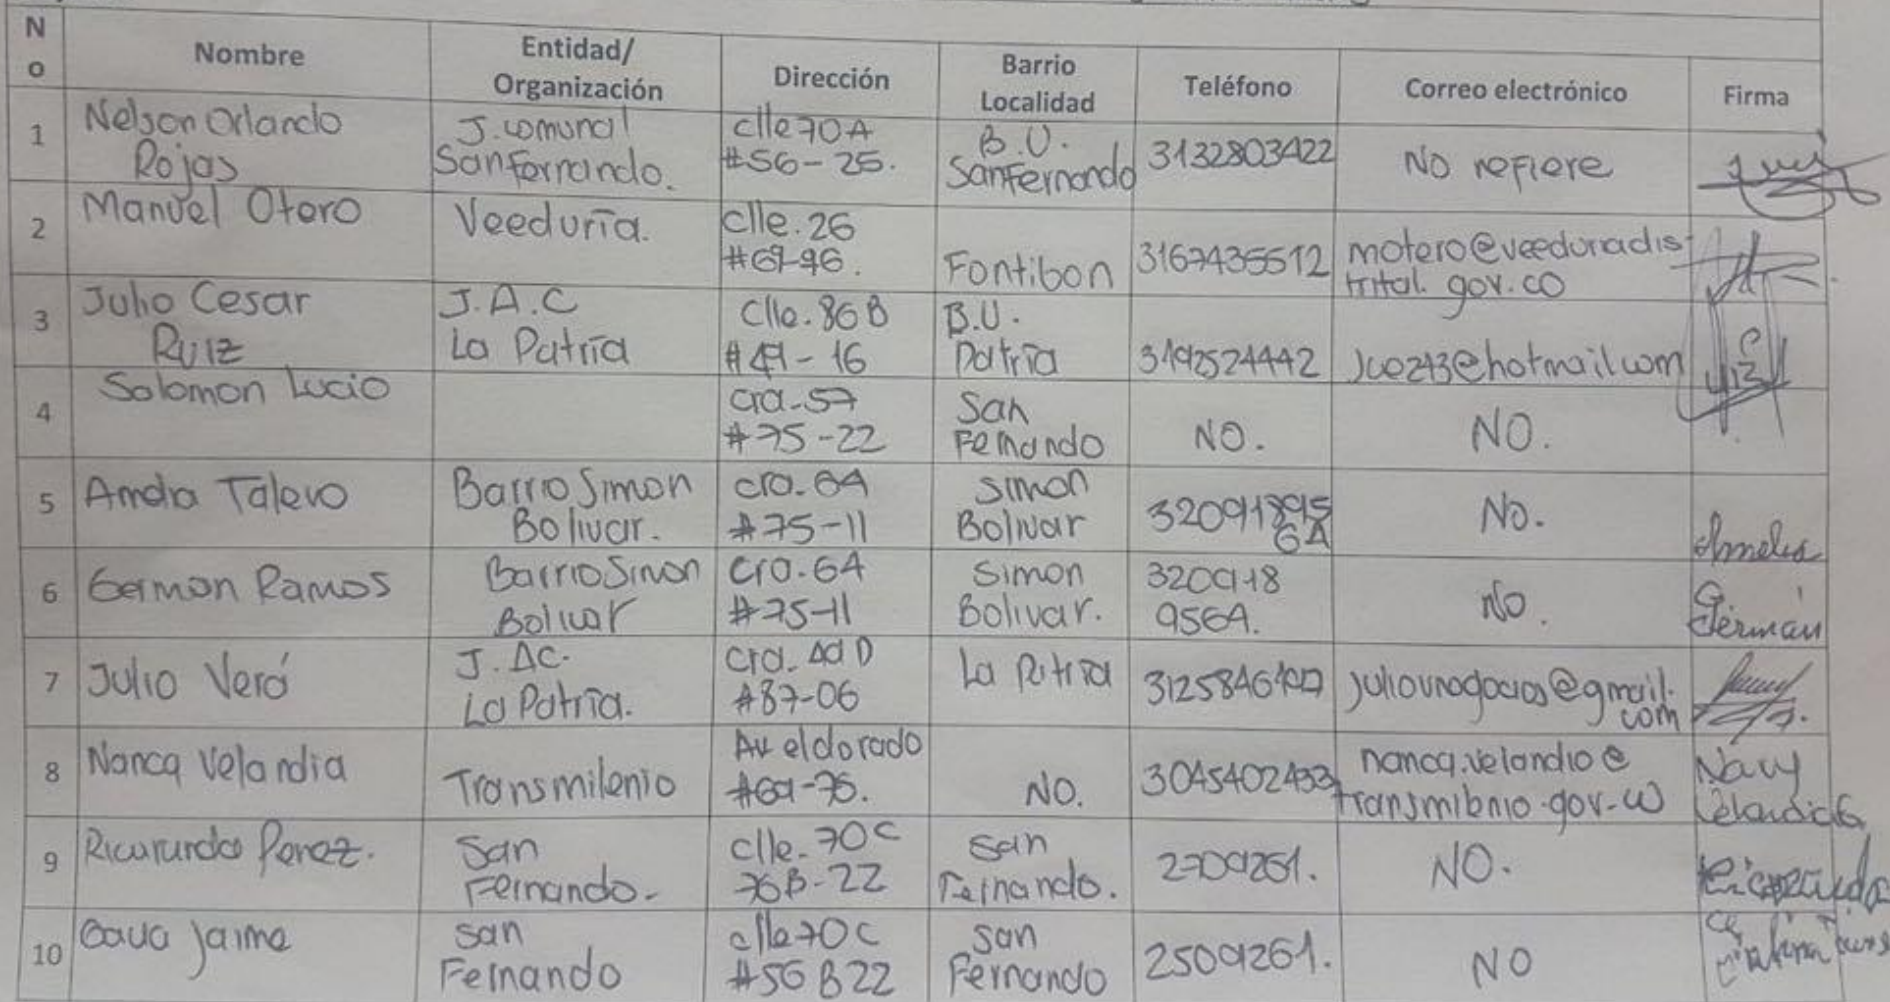 N
o
Nombre
Entidad/
Organización
Dirección
Barrio
Localidad
Teléfono
Correo electrónico
Firma
1
Nelson Orlando
Rojas
J. comunal
San Fernando.
clle 70A
#56-25.
B.U.
San Fernando
3132803422
No refiere
2
Manuel Otero
Veeduría.
clle. 26
#69-96.
Fontibon
3167435512
motero@veeduriadis
trital.gov.co
3
Julio Cesar
Ruiz
J.A.C
La Patria
Clle. 86B
#49-16
B.U.
Patria
3192524442
4
Solomon Lucio
cra-57
#75-22
San
Fernando
NO.
NO.
5
Talero
Barrio Simon
Bolivar.
cra. 64
#75-11
Simon
Bolivar
No.
Amelia
6
German Ramos
Barrio Simon
Bolivar
cra. 64
#75-11
Simon
Bolivar.
320918
9564.
No.
Germán
7
Julio
J.AC.
La Patria.
#87-06
La Patria
@gmail.
com
8
Nancy Velandia
Transmilenio
Av eldorado
#69-76.
NO.
nancy.velandia@
transmilenio.gov.co
Nancy
Velandia G
9
Perez.
San
Fernando.
clle. 70C
San
Fernando.
2709261.
NO.
10
Jaime
San
Fernando
clle 70C
#56B22
San
Fernando
2509261.
NO